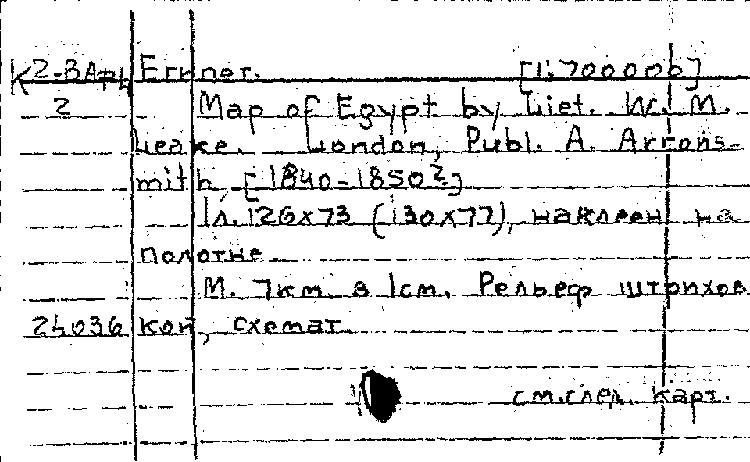 К2-ВАф Египет. [1:700000]
2 Map of Egypt by Liet. W. M.
Leake. London, Publ. A. Arrons-
mith, [1840-1850?]
1л. 126х73 (130х77), наклеен на
полотне.
М. 7км в 1см. Рельеф штрихов
24036 кой, схемат.
см.след. карт.